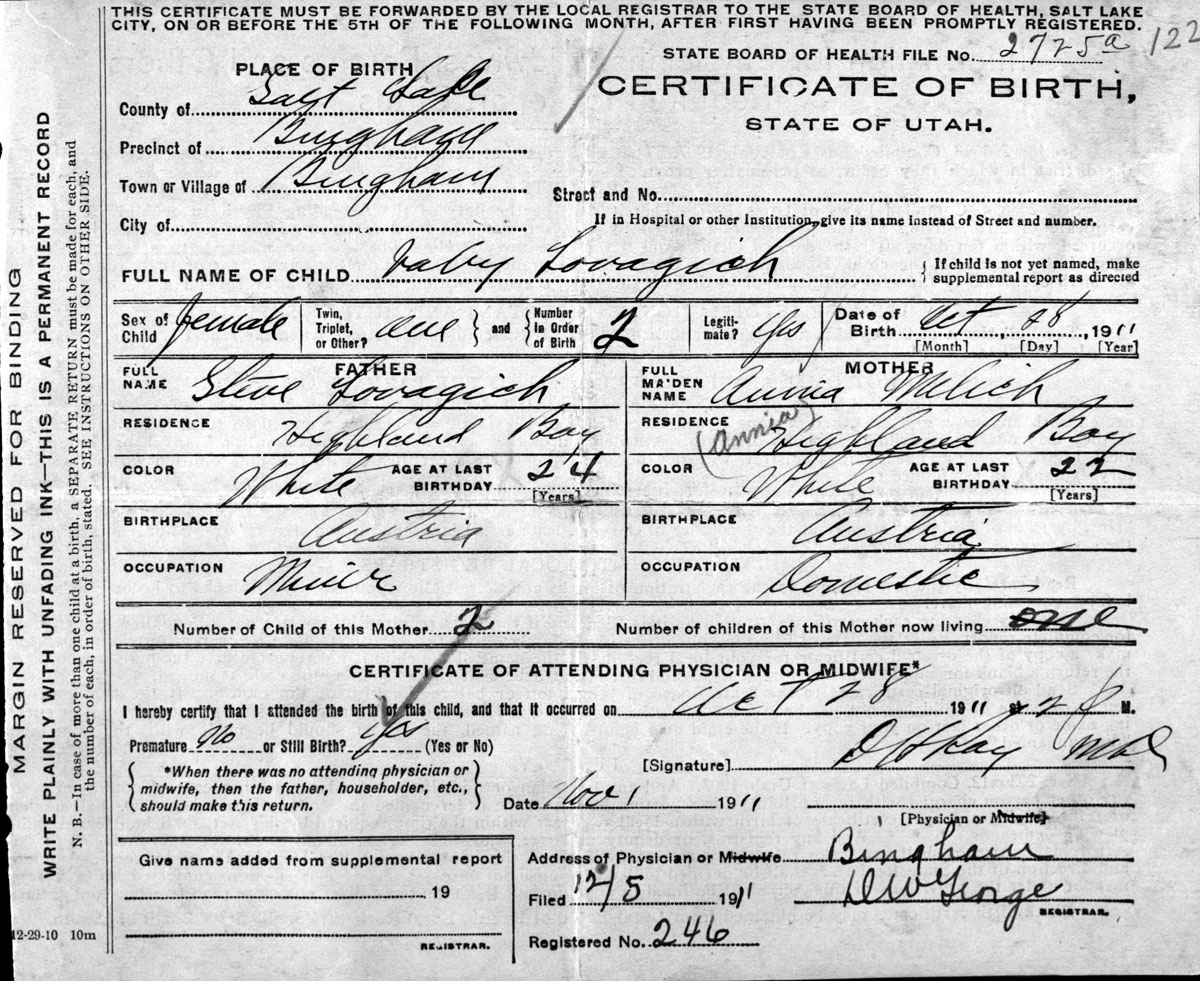 THIS CERTIFICATE MUST BE FORWARDED BY THE LOCAL REGISTRAR TO THE STATE BOARD OF HEALTH, SALT LAKE
CITY, ON OR BEFORE THE 5TH OF THE FOLLOWING MONTH, AFTER FIRST HAVING BEEN PROMPTLY REGISTERED.
STATE BOARD OF HEALTH FILE No. 2725a 122
PLACE OF BIRTH
CERTIFICATE OF BIRTH,
STATE OF UTAH.
County of Salt Lake
Precinct of Bingham
Town or Village of Bingham
Street and No.
City of
If in Hospital or other Institution, give its name instead of Street and number.
FULL NAME OF CHILD Baby Lovagich { If child is not yet named, make
supplemental report as directed
Sex of Child female Twin, Triplet, or Other? one } and { Number in Order of Birth 2 Legiti-mate? Yes Date of Birth Oct, 28 1911
[Month] [Day] [Year]
FATHER MOTHER
FULL NAME Steve Lovagich FULL MAIDEN NAME Annia Milich
(Annia)
RESIDENCE Highland Boy RESIDENCE Highland Boy
COLOR White AGE AT LAST BIRTHDAY 24 [Years] COLOR White AGE AT LAST BIRTHDAY 22 [Years]
BIRTHPLACE Austria BIRTHPLACE Austria
OCCUPATION Miner OCCUPATION Domestic
Number of Child of this Mother 2 Number of children of this Mother now living one
CERTIFICATE OF ATTENDING PHYSICIAN OR MIDWIFE*
I hereby certify that I attended the birth of this child, and that it occurred on Oct 28 1911 at 2 P M.
Premature No or Still Birth? Yes (Yes or No)
[Signature] M.D.
{ *When there was no attending physician or
midwife, then the father, householder, etc.,
should make this return. }
Date Nov 1 1911
[Physician or Midwife]
Give name added from supplemental report
Address of Physician or Midwife Bingham
19
Filed 12/5 1911 D W George
REGISTRAR.
REGISTRAR.
Registered No. 246
12-29-10 10m
MARGIN RESERVED FOR BINDING
WRITE PLAINLY WITH UNFADING INK—THIS IS A PERMANENT RECORD
N. B.—In case of more than one child at a birth, a SEPARATE RETURN must be made for each, and
the number of each, in order of birth, stated. SEE INSTRUCTIONS ON OTHER SIDE.